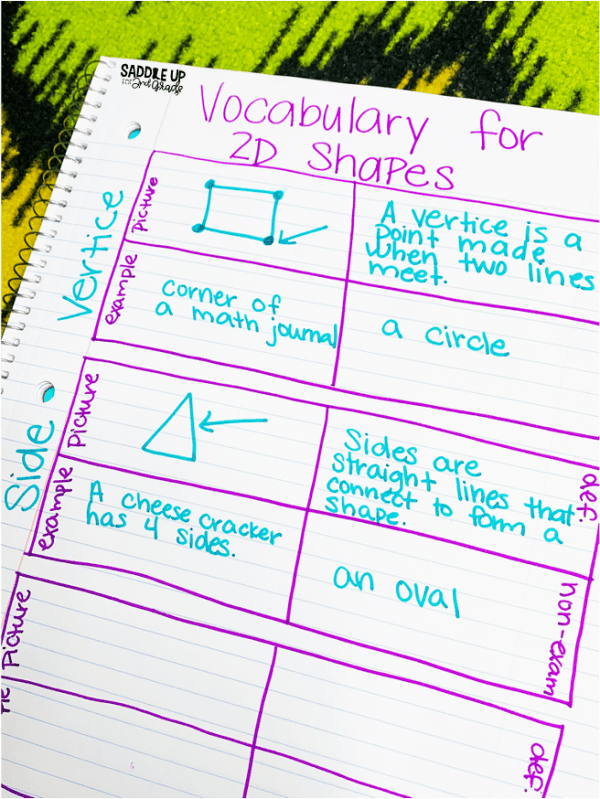 SADDLE UP
for 2nd Grade
Vocabulary for
2D Shapes
Vertice
Picture
A vertice is a
point made
when two lines
meet.
example
corner of
a math journal
a circle
Side
Picture
Sides are
straight lines that
connect to form a
shape.
def.
example
A cheese cracker
has 4 sides.
an oval
non-exam
Picture
def.